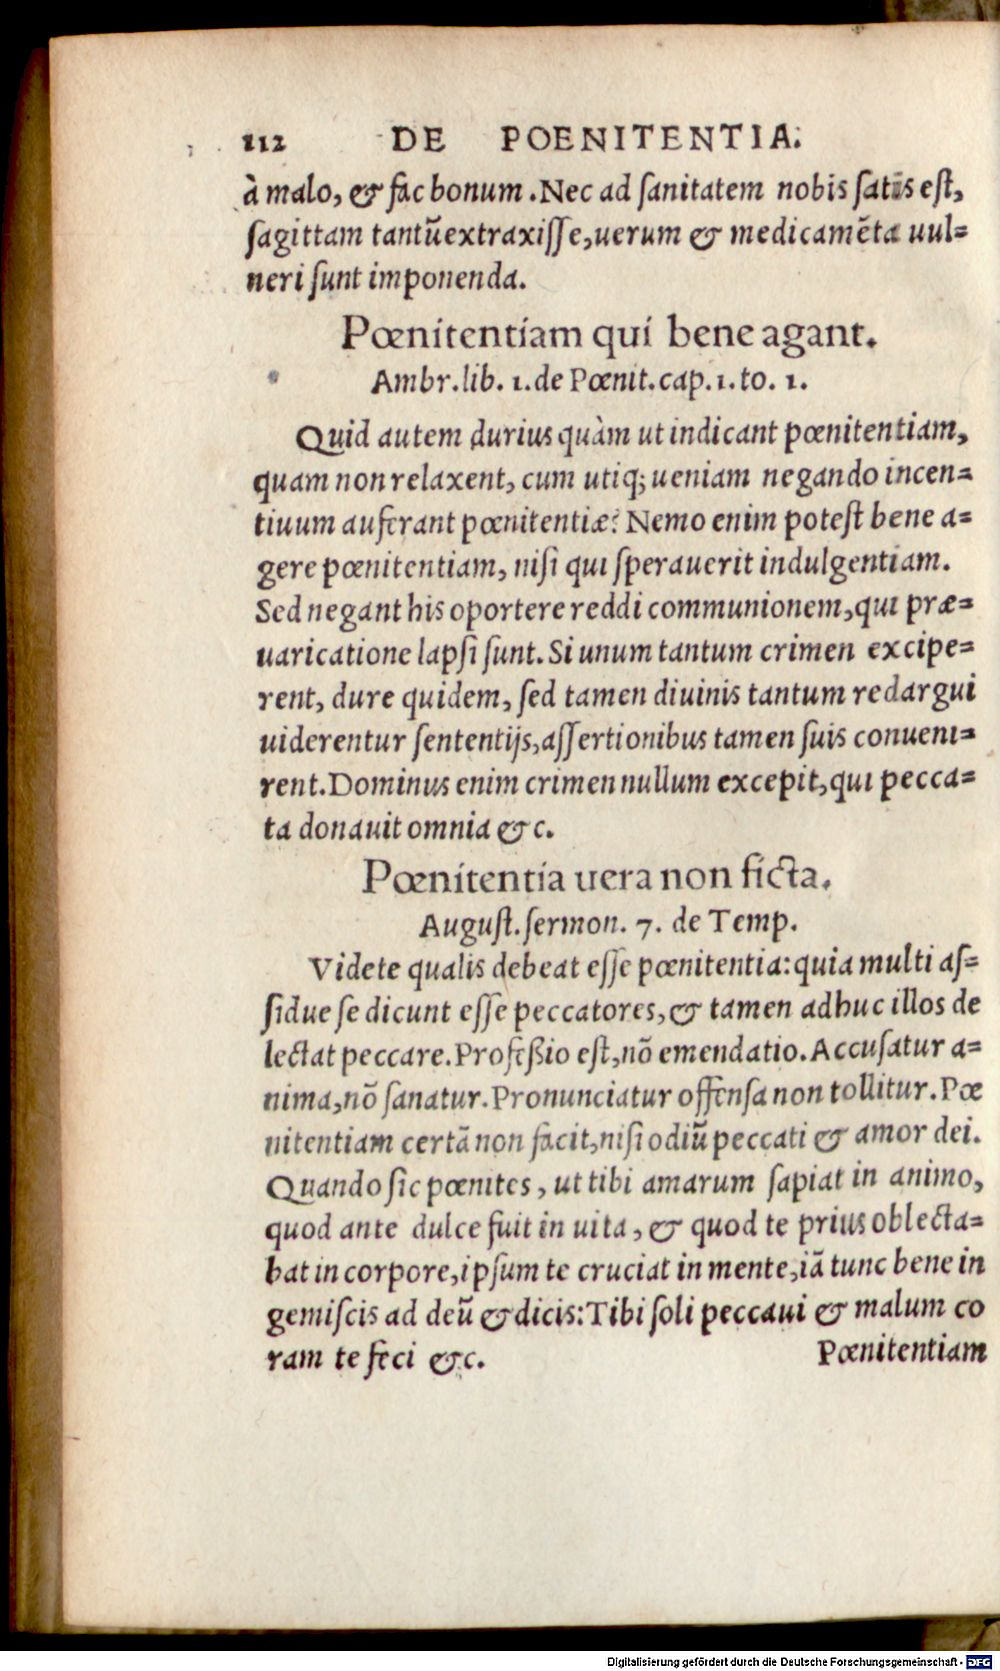 112 DE POENITENTIA.
à malo, & fac bonum. Nec ad sanitatem nobis satis est,
sagittam tantũ extraxisse, uerum & medicamẽta uul=
neri sunt imponenda.
Pœnitentiam qui bene agant.
Ambr. lib. 1. de Pœnit. cap. 1. to. 1.
Quid autem durius quàm ut indicant pœnitentiam,
quam non relaxent, cum utiq; ueniam negando incen=
tiuum auferant pœnitentiæ? Nemo enim potest bene a=
gere pœnitentiam, nisi qui sperauerit indulgentiam.
Sed negant his oportere reddi communionem, qui præ=
uaricatione lapsi sunt. Si unum tantum crimen excipe=
rent, dure quidem, sed tamen diuinis tantum redargui
uiderentur sententijs, assertionibus tamen suis conueni=
rent. Dominus enim crimen nullum excepit, qui pecca=
ta donauit omnia &c.
Pœnitentia uera non ficta.
August. sermon. 7. de Temp.
Videte qualis debeat esse pœnitentia: quia multi as=
sidue se dicunt esse peccatores, & tamen adhuc illos de
lectat peccare. Profeßio est, nõ emendatio. Accusatur a=
nima, nõ sanatur. Pronunciatur offensa non tollitur. Pœ
nitentiam certã non facit, nisi odiũ peccati & amor dei.
Quando sic pœnites, ut tibi amarum sapiat in animo,
quod ante dulce fuit in uita, & quod te prius oblecta=
bat in corpore, ipsum te cruciat in mente, iã tunc bene in
gemiscis ad deũ & dicis: Tibi soli peccaui & malum co
ram te feci &c. Pœnitentiam
Digitalisierung gefördert durch die Deutsche Forschungsgemeinschaft - DFG